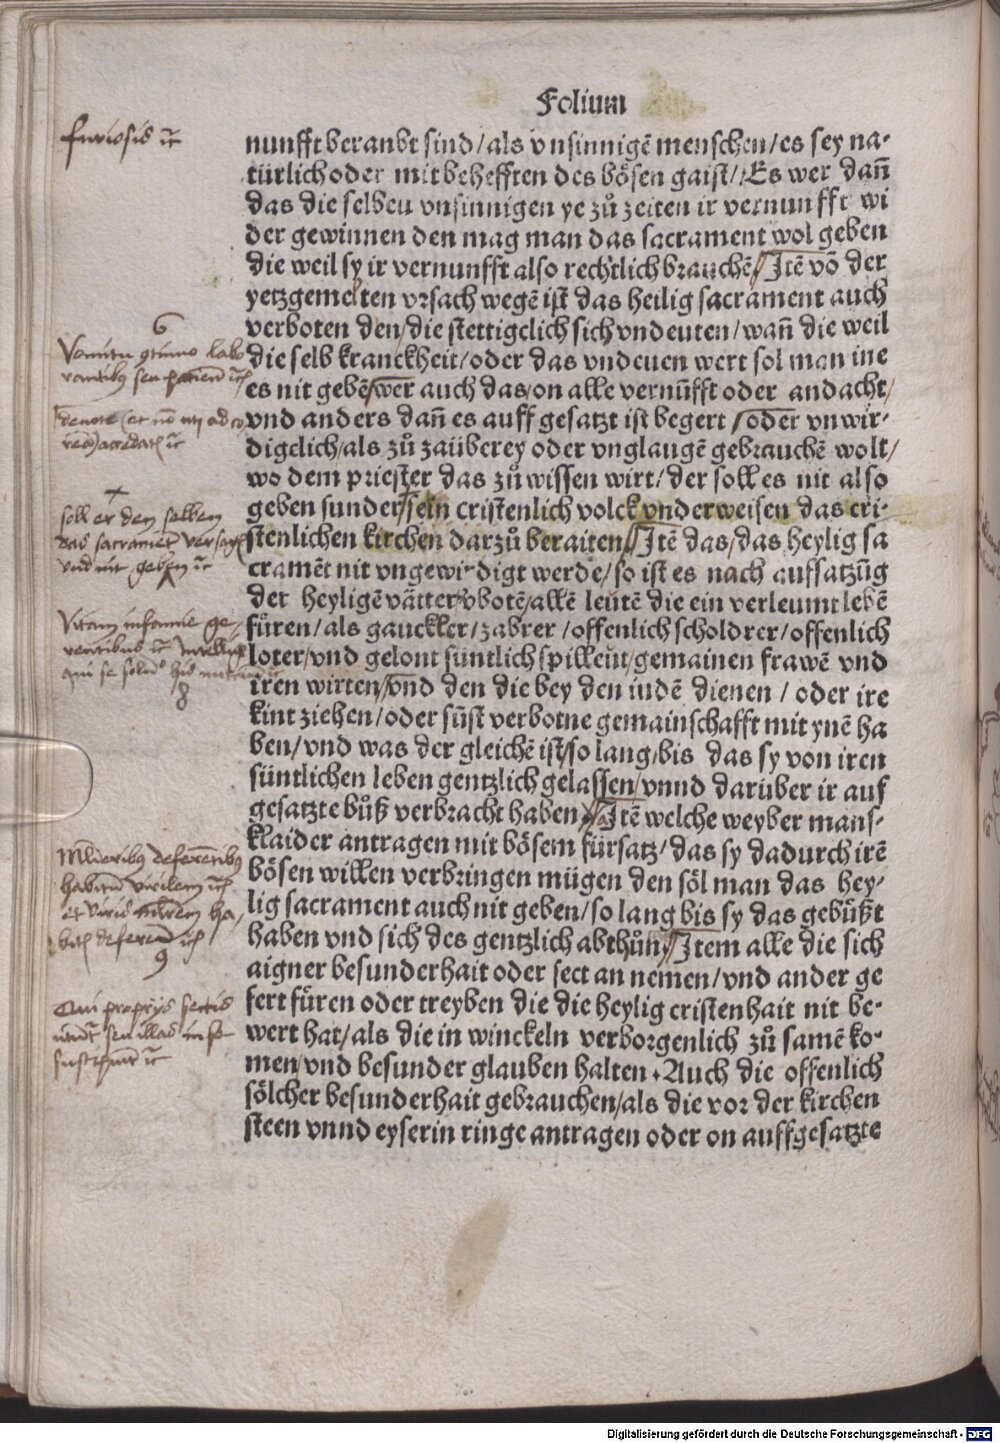 Folium
furiosis ꝛc
nunfft beraubt sind/als vnsinnigē menschen/es sey na⸗
türlich oder mit behefften des bösen gaist/Es wer dañ
das die selben vnsinnigen ye zů zeiten ir vernunfft wi
der gewinnen den mag man das sacrament wol geben
die weil sy ir vernunfft also rechtlich brauchē/Itē vō der
yetzgemelten vrsach wegē ist das heilig sacrament auch
verboten den/die stettigclich sich vndeuten/wañ die weil
die selb kranckheit/oder das vndeuen wert sol man ine
es nit gebē/wer auch das/on alle vernūfft oder andacht/
vnd anders dañ es auff gesatzt ist begert/oder vnwir⸗
digclich/als zů zaüberey oder vnglaugē gebrauchē wolt/
wo dem priester das zů wissen wirt/der soll es nit also
geben sunder sein cristenlich volck vnderweisen das cri⸗
stenlichen kirchen darzů beraiten/Itē das/das heylig sa
cramēt nit vngewirdigt werde/so ist es nach auffsatzūg
der heyligē vätter vbotē/allē leütē die ein verleumt lebē
füren/als gauckler/zabrer/offenlich scholdrer/offenlich
loter/vnd gelont süntlich spilleüt/gemainen frawē vnd
iren wirten/vnd den die bey den iudē dienen/oder ire
kint ziehen/oder sūst verbotne gemainschafft mit ynē ha
ben/vnd was der gleichē ist/so lang/bis das sy von iren
süntlichen leben gentzlich gelassen/vnnd darüber ir auf
gesatzte bůß verbracht haben/Itē welche weyber mans⸗
klaider antragen mit bösem fürsatz/das sy dadurch irē
bösen willen verbringen mügen den söl man das hey⸗
lig sacrament auch nit geben/so lang bis sy das gebüßt
haben vnd sich des gentzlich abthůn/Item alle die sich
aigner besunderhait oder sect an nemen/vnd ander ge
fert füren oder treyben die die heylig cristenhait nit be⸗
wert hat/als die in winckeln verborgenlich zů samē ko⸗
men/vnd besunder glauben halten.Auch die offenlich
sölcher besunderhait gebrauchen/als die vor der kirchen
steen vnnd eyserin ringe antragen oder on auffgesatzte
6
soll er den selben
das sacramēt versagē
vnd nit geben ꝛc
Vitam infamie ge⸗
rentibus ꝛc
8
Mulieribus deferētibus
habitū virilem ꝛc
9
Qui proprijs sectis
Digitalisierung gefördert durch die Deutsche Forschungsgemeinschaft - DFG